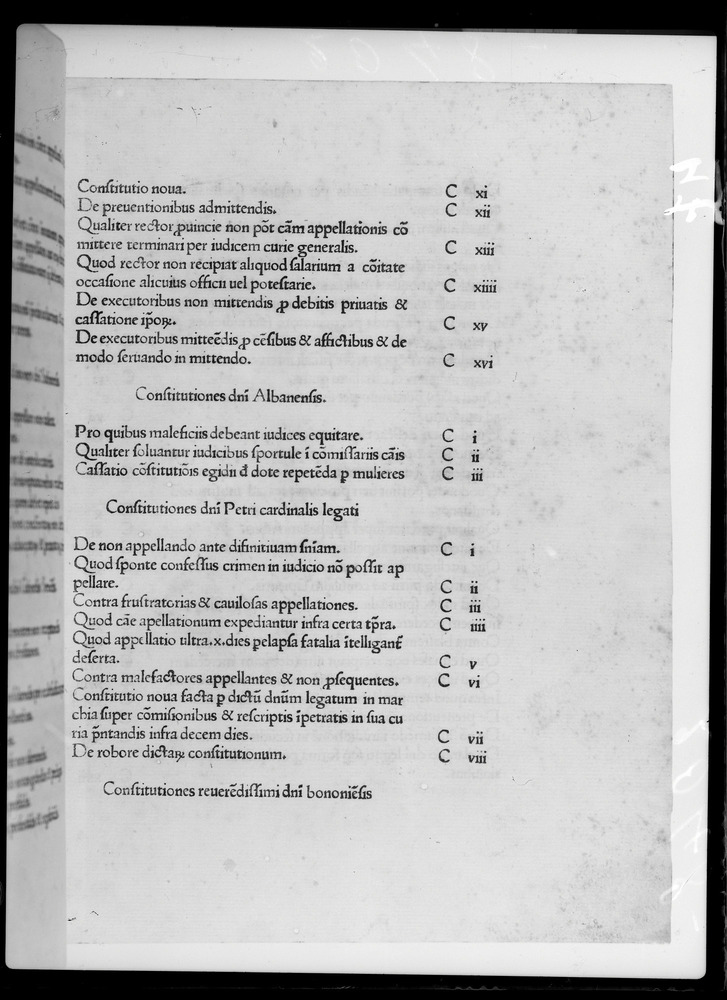 Conſtitutio noua. C xi
De preuentionibus admittendis. C xii
Qualiter rector ꝓuincie non pōt cām appellationis cō
mittere terminari per iudicem curie generalis. C xiii
Quod rector non recipiat aliquod ſalarium a cōitate
occaſione alicuius officii uel poteſtarie. C xiiii
De executoribus non mittendis ꝓ debitis priuatis &
caſſatione ip̄oꝝ. C xv
De executoribus mitteēdis ꝓ cēſibus & affictibus & de
modo ſeruando in mittendo. C xvi
Conſtitutiones dn̄i Albanenſis.
Pro quibus maleficiis debeant iudices equitare. C i
Qualiter ſoluantur iudicibus ſportule ī cōmiſſariis cāis C ii
Caſſatio cōſtitutiōis egidii đ dote repetēda ꝑ mulieres C iii
Conſtitutiones dn̄i Petri cardinalis legati
De non appellando ante difinitiuam ſn̄iam. C i
Quod ſponte confeſſus crimen in iudicio nō poſſit ap
pellare. C ii
Contra fruſtratorias & cauiloſas appellationes. C iii
Quod cāe apellationum expediantur infra certa tp̄ra. C iiii
Quod appellatio ultra.x.dies pelapſa fatalia ītelligant᷑
deſerta. C v
Contra malefactores appellantes & non ꝓſequentes. C vi
Conſtitutio noua facta ꝑ dictū dnūm legatum in mar
chia ſuper cōmiſionibus & reſcriptis īpetratis in ſua cu
ria p̄ntandis infra decem dies. C vii
De robore dictaꝝ conſtitutionum. C viii
Conſtitutiones reuerēdiſſimi dn̄i bononiēſis